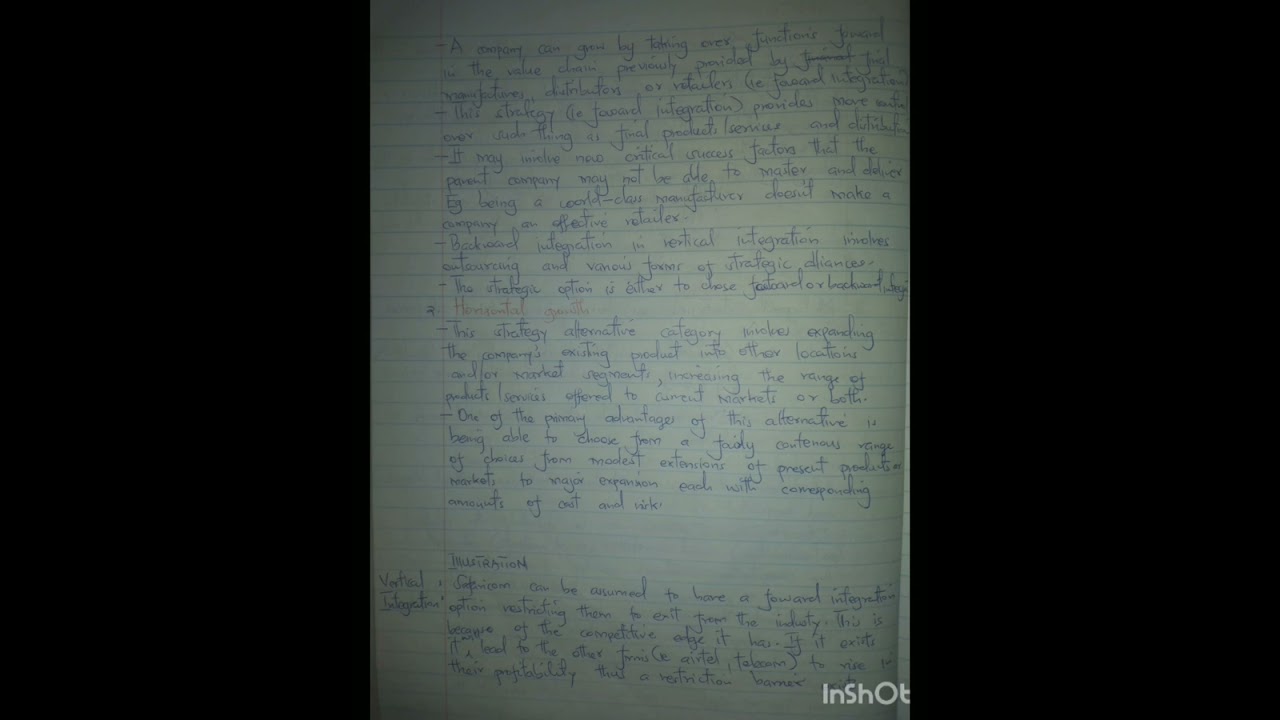 - A company can grow by taking over functions forward
in the value chain previously provided by final
manufactures, distributors or retailers (ie foward integration)
- This strategy (ie foward integration) provides more control
over such thing as final products/services and distribution
- It may involve new critical success factors that the
parent company may not be able to master and deliver
Eg being a world-class manufacturer doesn't make a
company an effective retailer.
- Backward integration in vertical integration involves
outsourcing and various forms of strategic alliances.
- The strategic option is either to chose foward or backward
2. Horizontal growth
- This strategy alternative category involves expanding
the company's existing product into other locations
and/or market segments, increasing the range of
products/services offered to current markets or both.
- One of the primary advantages of this alternative is
being able to choose from a fairly range
of choices from modest extensions of present products or
markets to major expansion each with corresponding
amounts of cost and risk.
ILLUSTRATION
Vertical Integration:
Safaricom can be assumed to have a foward integration
option restricting them to exit from the industry. This is
because of the competitive edge it has. If it exists
it lead to the other firms (ie airtel, telecom) to rise in
their profitability thus a restriction barrier
InShOt